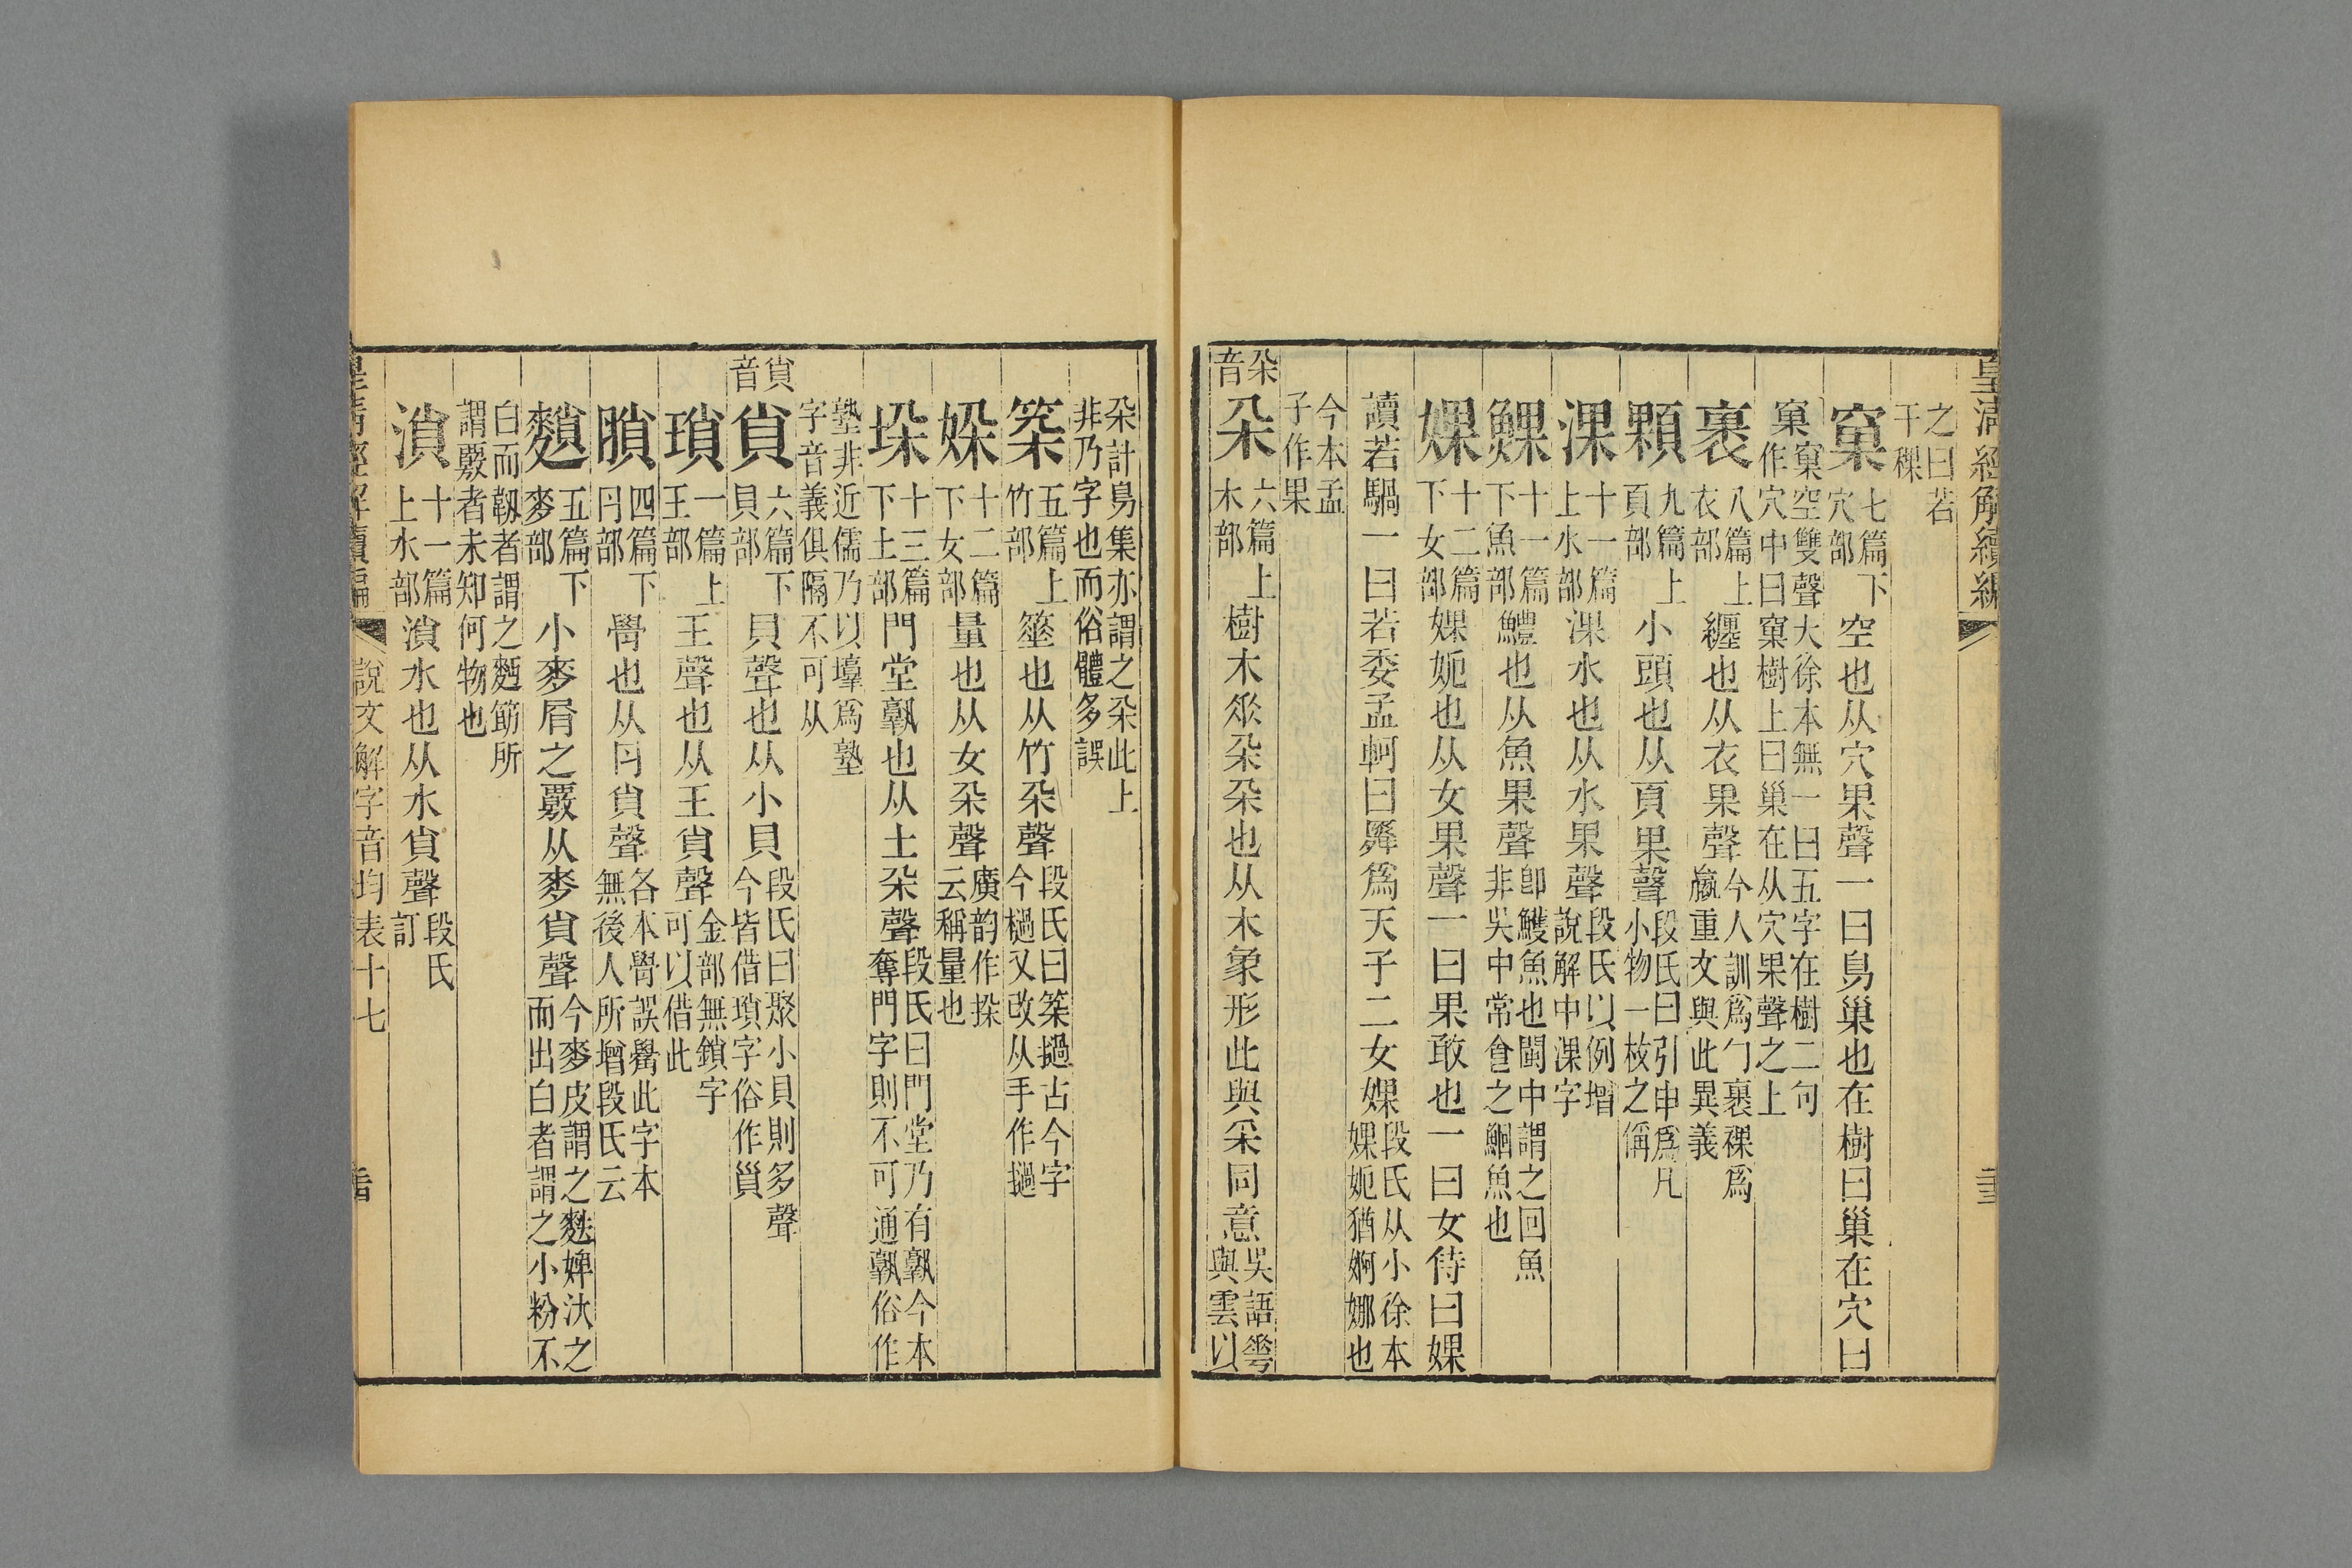 皇清經解續編
之曰若
干稞
窠七篇下穴部空也从穴果聲一曰鳥巢也在樹曰巢在穴曰
窠窠空雙聲大徐本無一曰五字在樹二句
作穴中曰窠樹上曰巢在从穴果聲之上
裹八篇上衣部纏也从衣果聲今人訓爲勹裹裸爲
臝重文與此異義
顆九篇上頁部小頭也从頁果聲段氏曰引申爲凡
小物一枚之偁
淉十一篇上水部淉水也从水果聲段氏以例增
說解中淉字
鰥十一篇下魚部鱧也从魚果聲卽鱯魚也閩中謂之回魚
非吳中常食之鮰魚也
婐十二篇下女部婐妮也从女果聲一曰果敢也一曰女侍曰婐
讀若騧一曰若委孟軻曰舜爲天子二女婐段氏从小徐本
婐妮猶婀娜也
今本孟
子作果
朵音
朵六篇上木部樹木𠂹朵朵也从木象形此與采同意吳語㖠
與雲以
朵計鳥集亦謂之朵此上
非乃字也而俗體多誤
築五篇上竹部箠也从竹朵聲段氏曰築撾古今字
今檛又改从手作撾
媣十二篇下女部量也从女朵聲廣韵作挆
云稱量也
垛十三篇下土部門堂𡎐也从土朵聲段氏曰門堂乃有𡎐今本
奪門字則不可通𡎐俗作
塾非近儒乃以𡑞爲塾
字音義俱隔不可从
𧴪音
𧴪六篇下貝部貝聲也从小貝段氏曰聚小貝則多聲
今皆借瑣字俗作𧴪
瑣一篇上王部王聲也从王𧴪聲金部無鎖字
可以借此
䐝四篇下冃部骨也从冃𧴪聲各本骨誤觷此字本
無後人所增段氏云
䴹五篇下麥部小麥屑之覈从麥𧴪聲今麥皮謂之麩婢汏之
而出白者謂之小粉不
白而韌者謂之麪筋所
謂覈者未知何物也
溑十一篇上水部溑水也从水𧴪聲段氏
訂
皇清經解續編
說文解字音均表十七